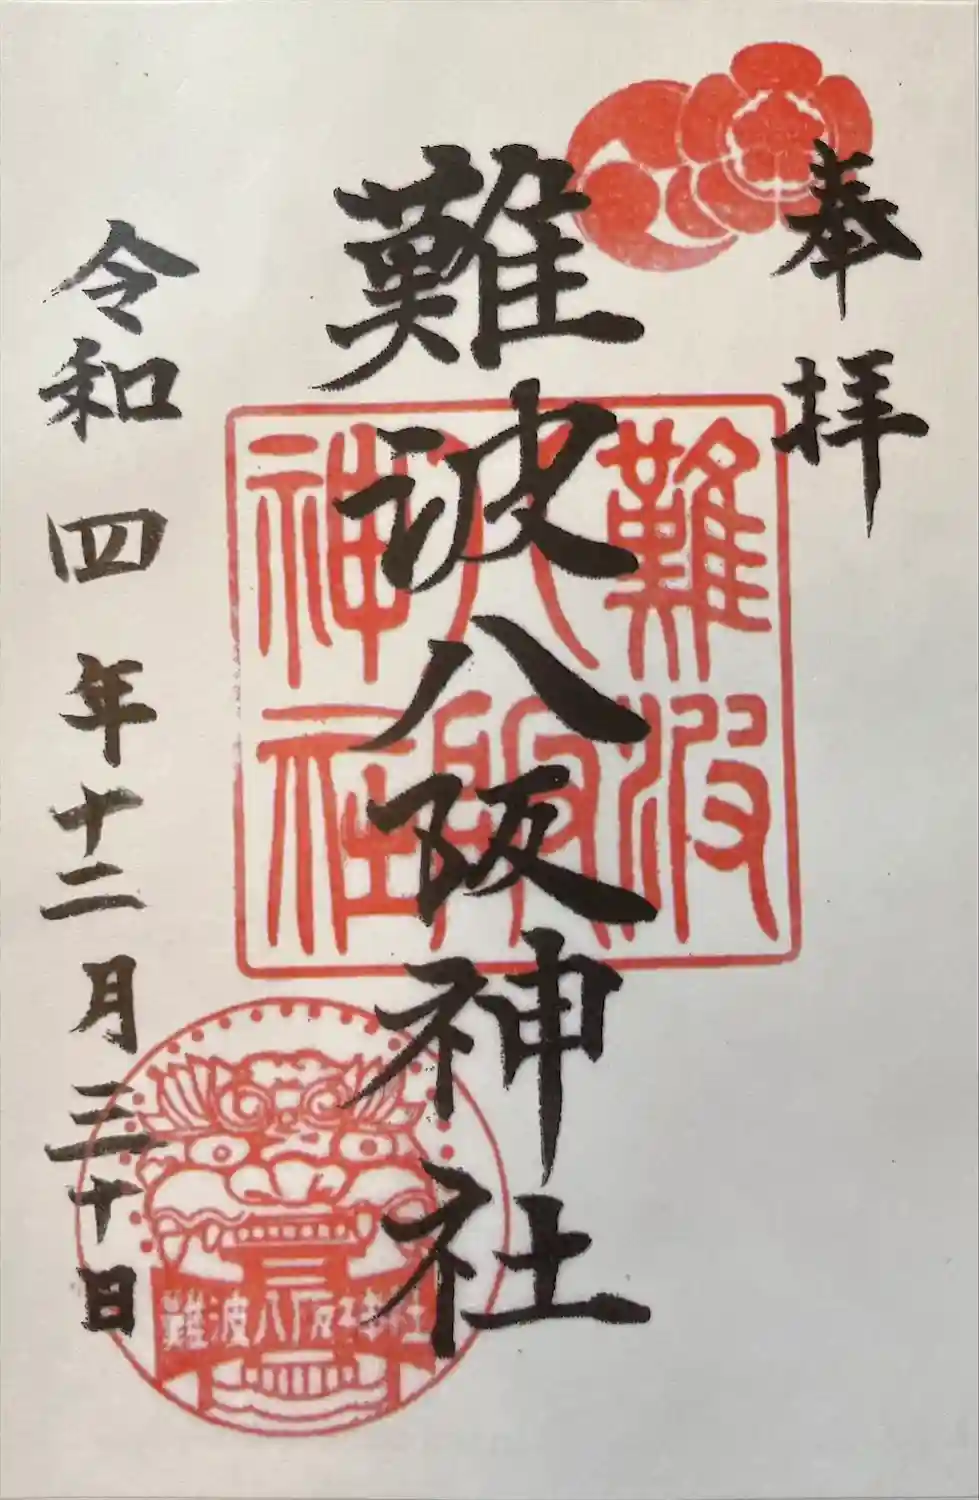 奉拝
難波八阪神社
難波
八阪
神社
令和四年十二月三十日
難波八阪神社